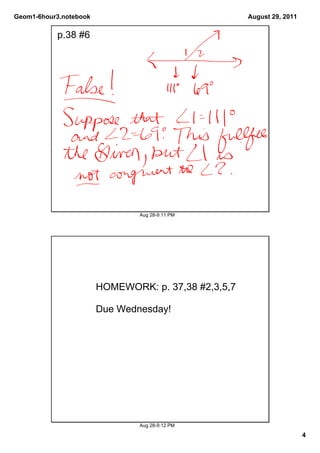 Geom1-6hour3.notebook
August 29, 2011
p.38 #6
1 2
111° 69°
False!
Suppose that ∠1=111°
and ∠2=69°. This fulfills
the Given, but ∠1 is
not congruent to ∠2.
Aug 28-9:11 PM
HOMEWORK: p. 37,38 #2,3,5,7
Due Wednesday!
Aug 28-9:12 PM
4